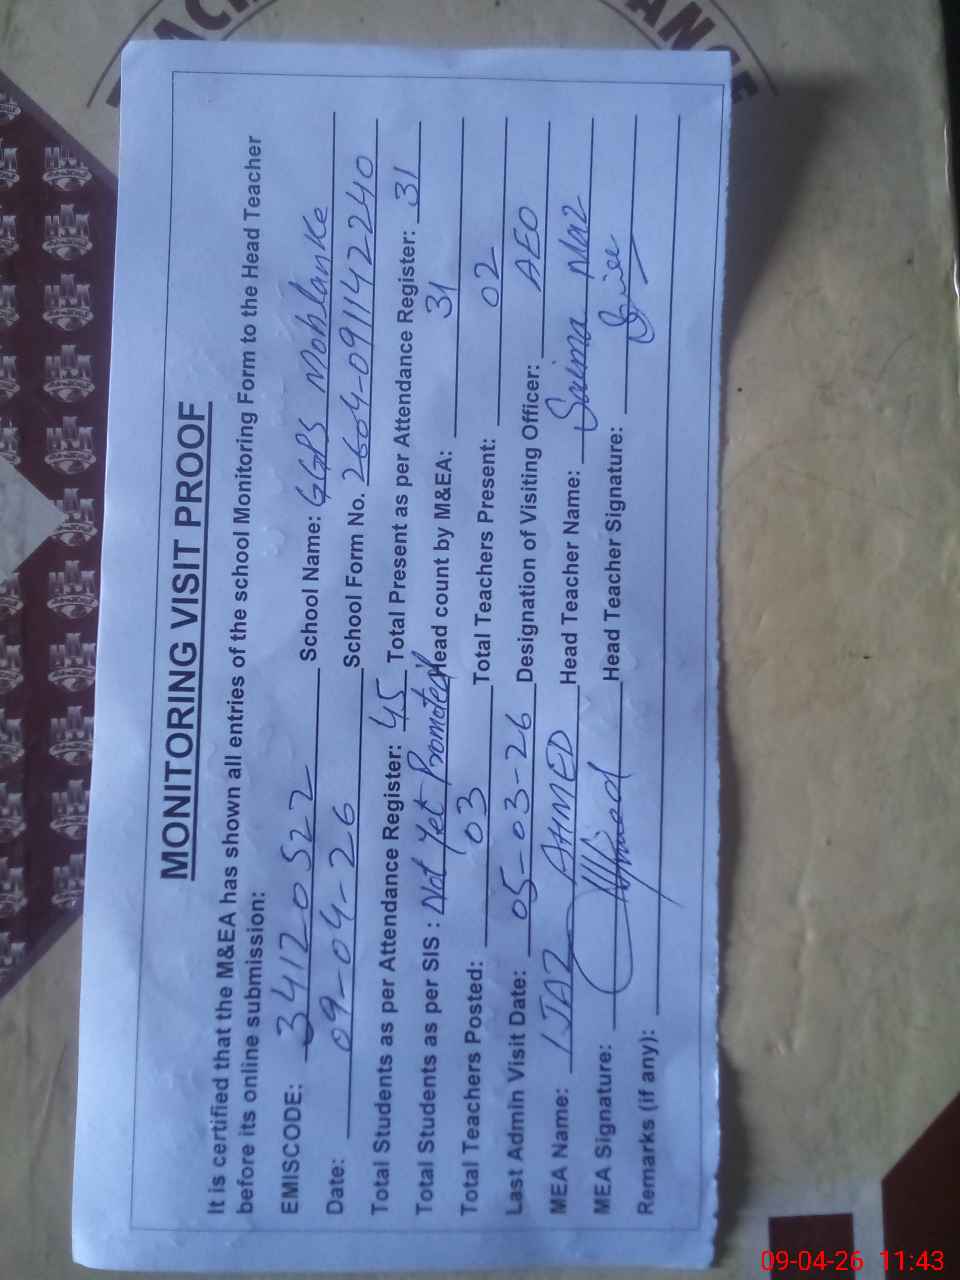 MONITORING VISIT PROOF
It is certified that the M&EA has shown all entries of the school Monitoring Form to the Head Teacher
before its online submission:
EMISCODE: 34120522 School Name: GGPS Moblanke
Date: 09-04-26 School Form No. 2604-091142240
Total Students as per Attendance Register: 45 Total Present as per Attendance Register: 31
Total Students as per SIS : Not Yet Promoted Head count by M&EA: 31
Total Teachers Posted: 03 Total Teachers Present: 02
Last Admin Visit Date: 05-03-26 Designation of Visiting Officer: AEO
MEA Name: IJAZ AHMED Head Teacher Name: Saima Naz
MEA Signature: Head Teacher Signature:
Remarks (if any):
09-04-26 11:43